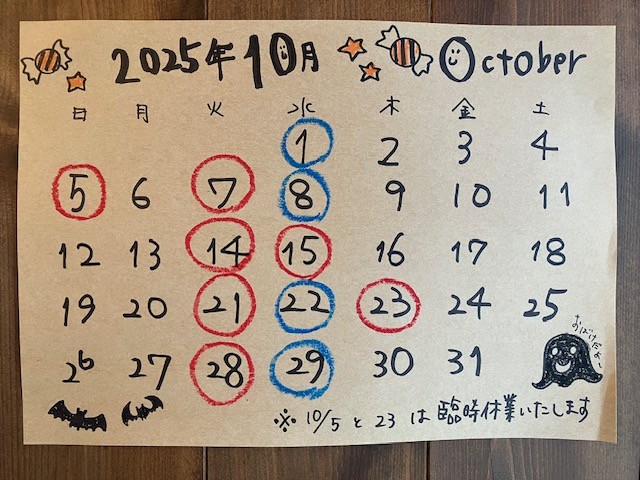 2025年10月 October
日 月 火 水 木 金 土
1 2 3 4
5 6 7 8 9 10 11
12 13 14 15 16 17 18
19 20 21 22 23 24 25
おばけだぞー
26 27 28 29 30 31
※ 10/5 と 23 は臨時休業いたします